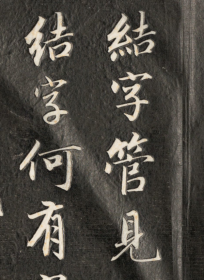 結字管見
結字何有